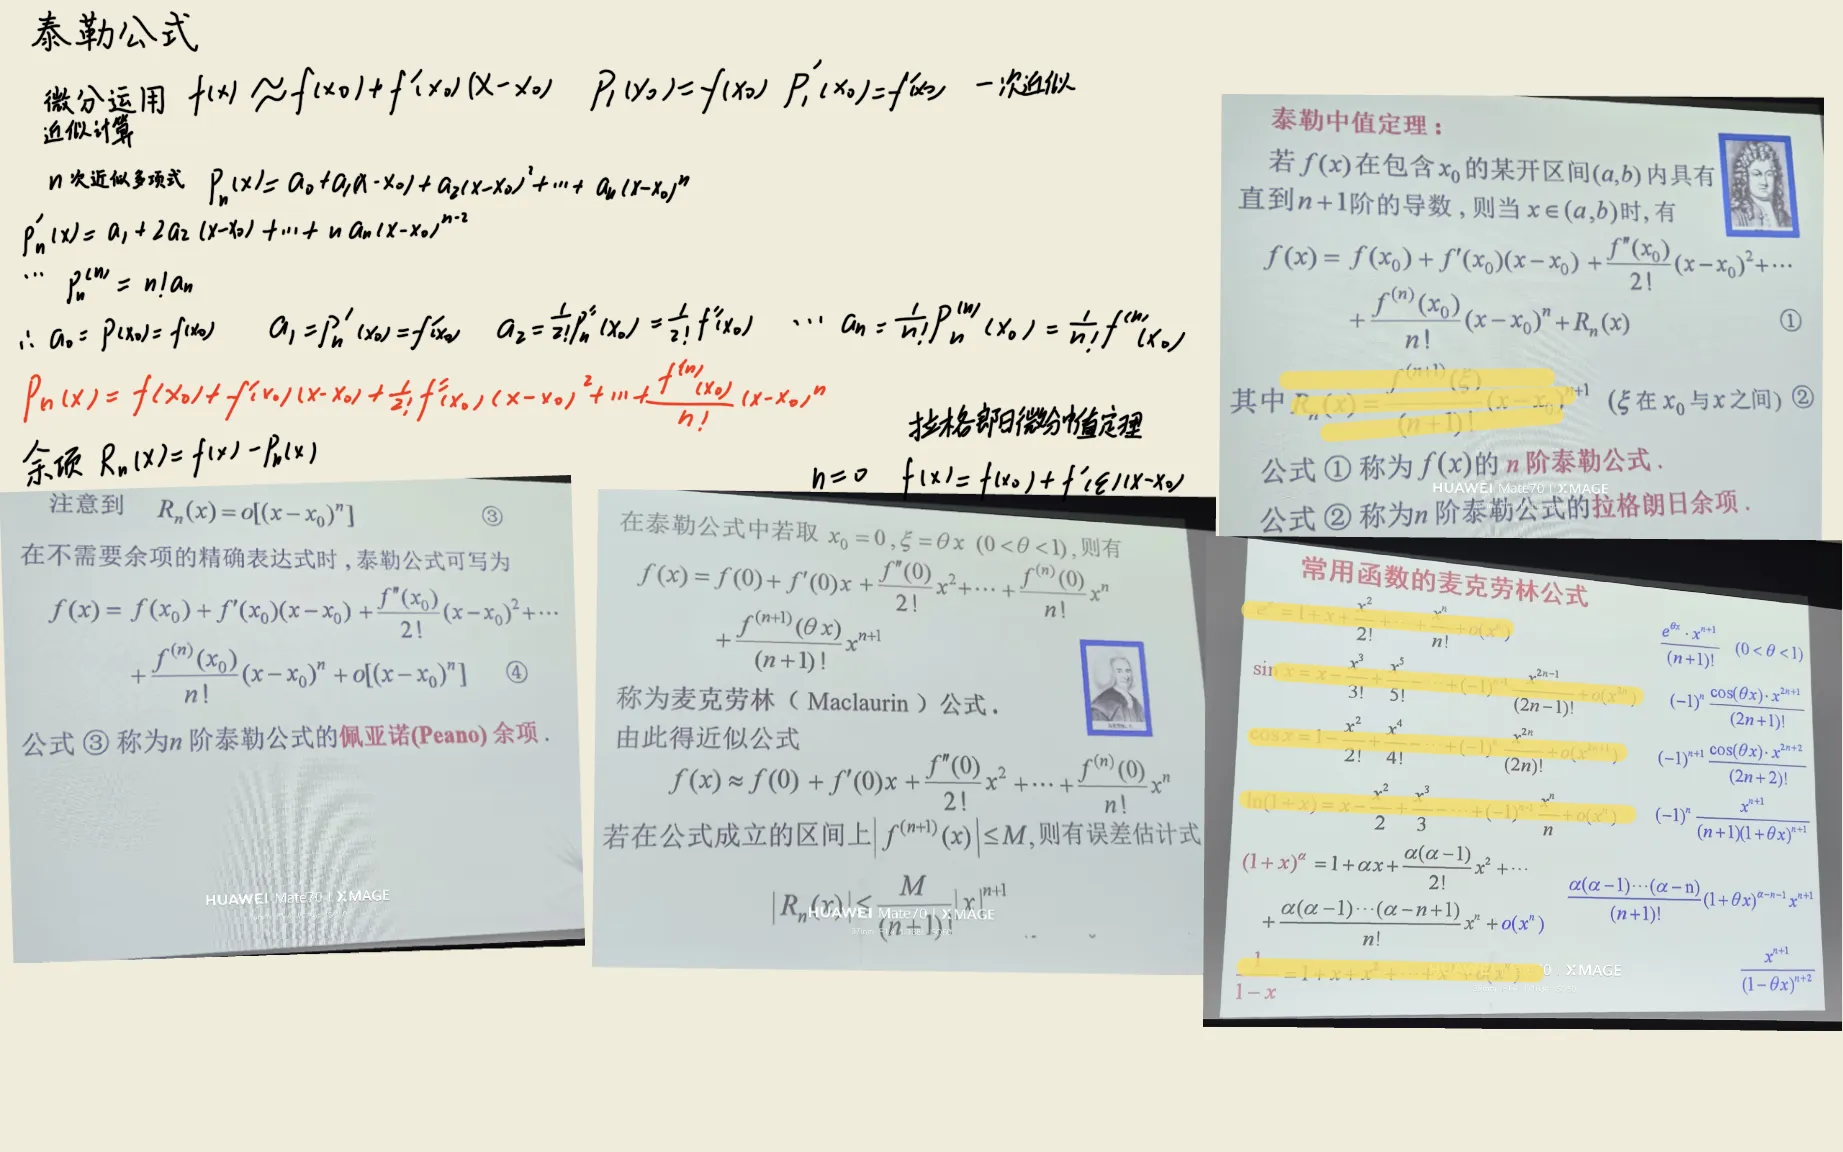 泰勒公式
微分运用 f(x) ≈ f(x₀) + f′(x₀)(x-x₀)  P₁(x₀) = f(x₀)  P₁′(x₀) = f′(x₀)  一次近似
近似计算
n次近似多项式 Pₙ(x) = a₀ + a₁(x-x₀) + a₂(x-x₀)² + … + aₙ(x-x₀)ⁿ
Pₙ′(x) = a₁ + 2a₂(x-x₀) + … + n aₙ(x-x₀)ⁿ⁻²
… Pₙ⁽ⁿ⁾ = n!aₙ
∴ a₀ = P(x₀) = f(x₀)  a₁ = Pₙ′(x₀) = f′(x₀)  a₂ = 1/2! Pₙ″(x₀) = 1/2! f″(x₀)  … aₙ = 1/n! Pₙ⁽ⁿ⁾(x₀) = 1/n! f⁽ⁿ⁾(x₀)
Pₙ(x) = f(x₀) + f′(x₀)(x-x₀) + 1/2! f″(x₀)(x-x₀)² + … + f⁽ⁿ⁾(x₀)/n! (x-x₀)ⁿ
余项 Rₙ(x) = f(x) - Pₙ(x)
拉格郎日微分中值定理
n=0  f(x) = f(x₀) + f′(ξ)(x-x₀)
泰勒中值定理:
若 f(x) 在包含 x₀ 的某开区间 (a,b) 内具有
直到 n+1 阶的导数, 则当 x∈(a,b) 时, 有
f(x) = f(x₀) + f′(x₀)(x-x₀) + f″(x₀)/2! (x-x₀)² + ⋯
+ f⁽ⁿ⁾(x₀)/n! (x-x₀)ⁿ + Rₙ(x) ①
其中 Rₙ(x) = f⁽ⁿ⁺¹⁾(ξ)/(n+1)! (x-x₀)ⁿ⁺¹ (ξ 在 x₀ 与 x 之间) ②
公式 ① 称为 f(x) 的 n 阶泰勒公式.
HUAWEI Mate70 | XMAGE
公式 ② 称为 n 阶泰勒公式的拉格朗日余项.
注意到 Rₙ(x) = o[(x-x₀)ⁿ] ③
在不需要余项的精确表达式时, 泰勒公式可写为
f(x) = f(x₀) + f′(x₀)(x-x₀) + f″(x₀)/2! (x-x₀)² + ⋯
+ f⁽ⁿ⁾(x₀)/n! (x-x₀)ⁿ + o[(x-x₀)ⁿ] ④
公式 ③ 称为 n 阶泰勒公式的佩亚诺(Peano) 余项.
HUAWEI Mate70 | XMAGE
在泰勒公式中若取 x₀ = 0, ξ = θx (0<θ<1), 则有
f(x) = f(0) + f′(0)x + f″(0)/2! x² + ⋯ + f⁽ⁿ⁾(0)/n! xⁿ
+ f⁽ⁿ⁺¹⁾(θx)/(n+1)! xⁿ⁺¹
称为麦克劳林 ( Maclaurin ) 公式.
由此得近似公式
f(x) ≈ f(0) + f′(0)x + f″(0)/2! x² + ⋯ + f⁽ⁿ⁾(0)/n! xⁿ
若在公式成立的区间上 |f⁽ⁿ⁺¹⁾(x)| ≤ M, 则有误差估计式
|Rₙ(x)| ≤ M/(n+1)! |x|ⁿ⁺¹
HUAWEI Mate70 | XMAGE
常用函数的麦克劳林公式
eˣ = 1 + x + x²/2! + ⋯ + xⁿ/n! + o(xⁿ)  e^(θx)·xⁿ⁺¹/(n+1)! (0<θ<1)
sin x = x - x³/3! + x⁵/5! - ⋯ + (-1)ⁿ⁻¹ x²ⁿ⁻¹/(2n-1)! + o(x²ⁿ)  (-1)ⁿ cos(θx)·x²ⁿ⁺¹/(2n+1)!
cos x = 1 - x²/2! + x⁴/4! - ⋯ + (-1)ⁿ x²ⁿ/(2n)! + o(x²ⁿ⁺¹)  (-1)ⁿ⁺¹ cos(θx)·x²ⁿ⁺²/(2n+2)!
ln(1+x) = x - x²/2 + x³/3 - ⋯ + (-1)ⁿ⁻¹ xⁿ/n + o(xⁿ)  (-1)ⁿ xⁿ⁺¹/(n+1)(1+θx)ⁿ⁺¹
(1+x)^α = 1 + αx + α(α-1)/2! x² + ⋯
+ α(α-1)⋯(α-n+1)/n! xⁿ + o(xⁿ)  α(α-1)⋯(α-n)/(n+1)! (1+θx)^(α-n-1) xⁿ⁺¹
1/(1-x) = 1 + x + x² + ⋯ + xⁿ + o(xⁿ)  xⁿ⁺¹/(1-θx)ⁿ⁺²
70 XMAGE